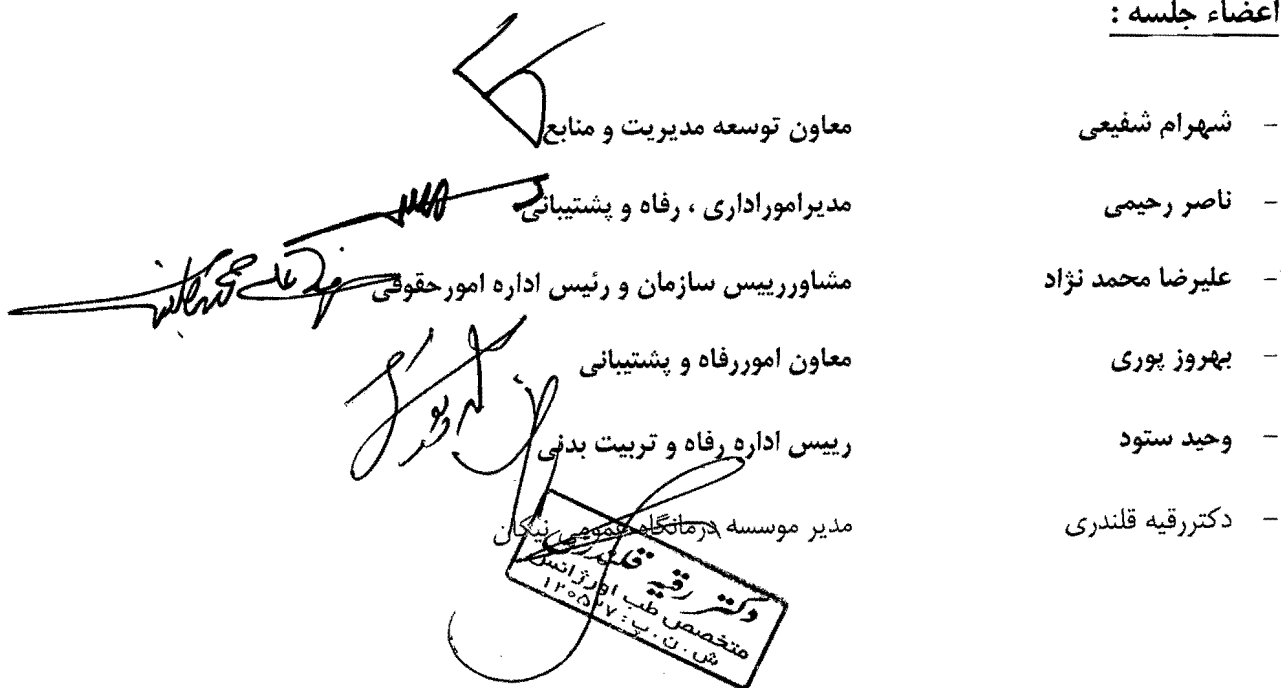 اعضاء جلسه :
- شهرام شفیعی معاون توسعه مدیریت و منابع
- ناصر رحیمی مدیراموراداری ، رفاه و پشتیبانی
- علیرضا محمد نژاد مشاوررییس سازمان و رئیس اداره امورحقوقی
- بهروز پوری معاون اموررفاه و پشتیبانی
- وحید ستود رییس اداره رفاه و تربیت بدنی
- دکتررقیه قلندری مدیر موسسه درمانگاه عمومی نیکان
دکتر رقیه قلندری
متخصص طب اورژانس
ش . ن . پ :